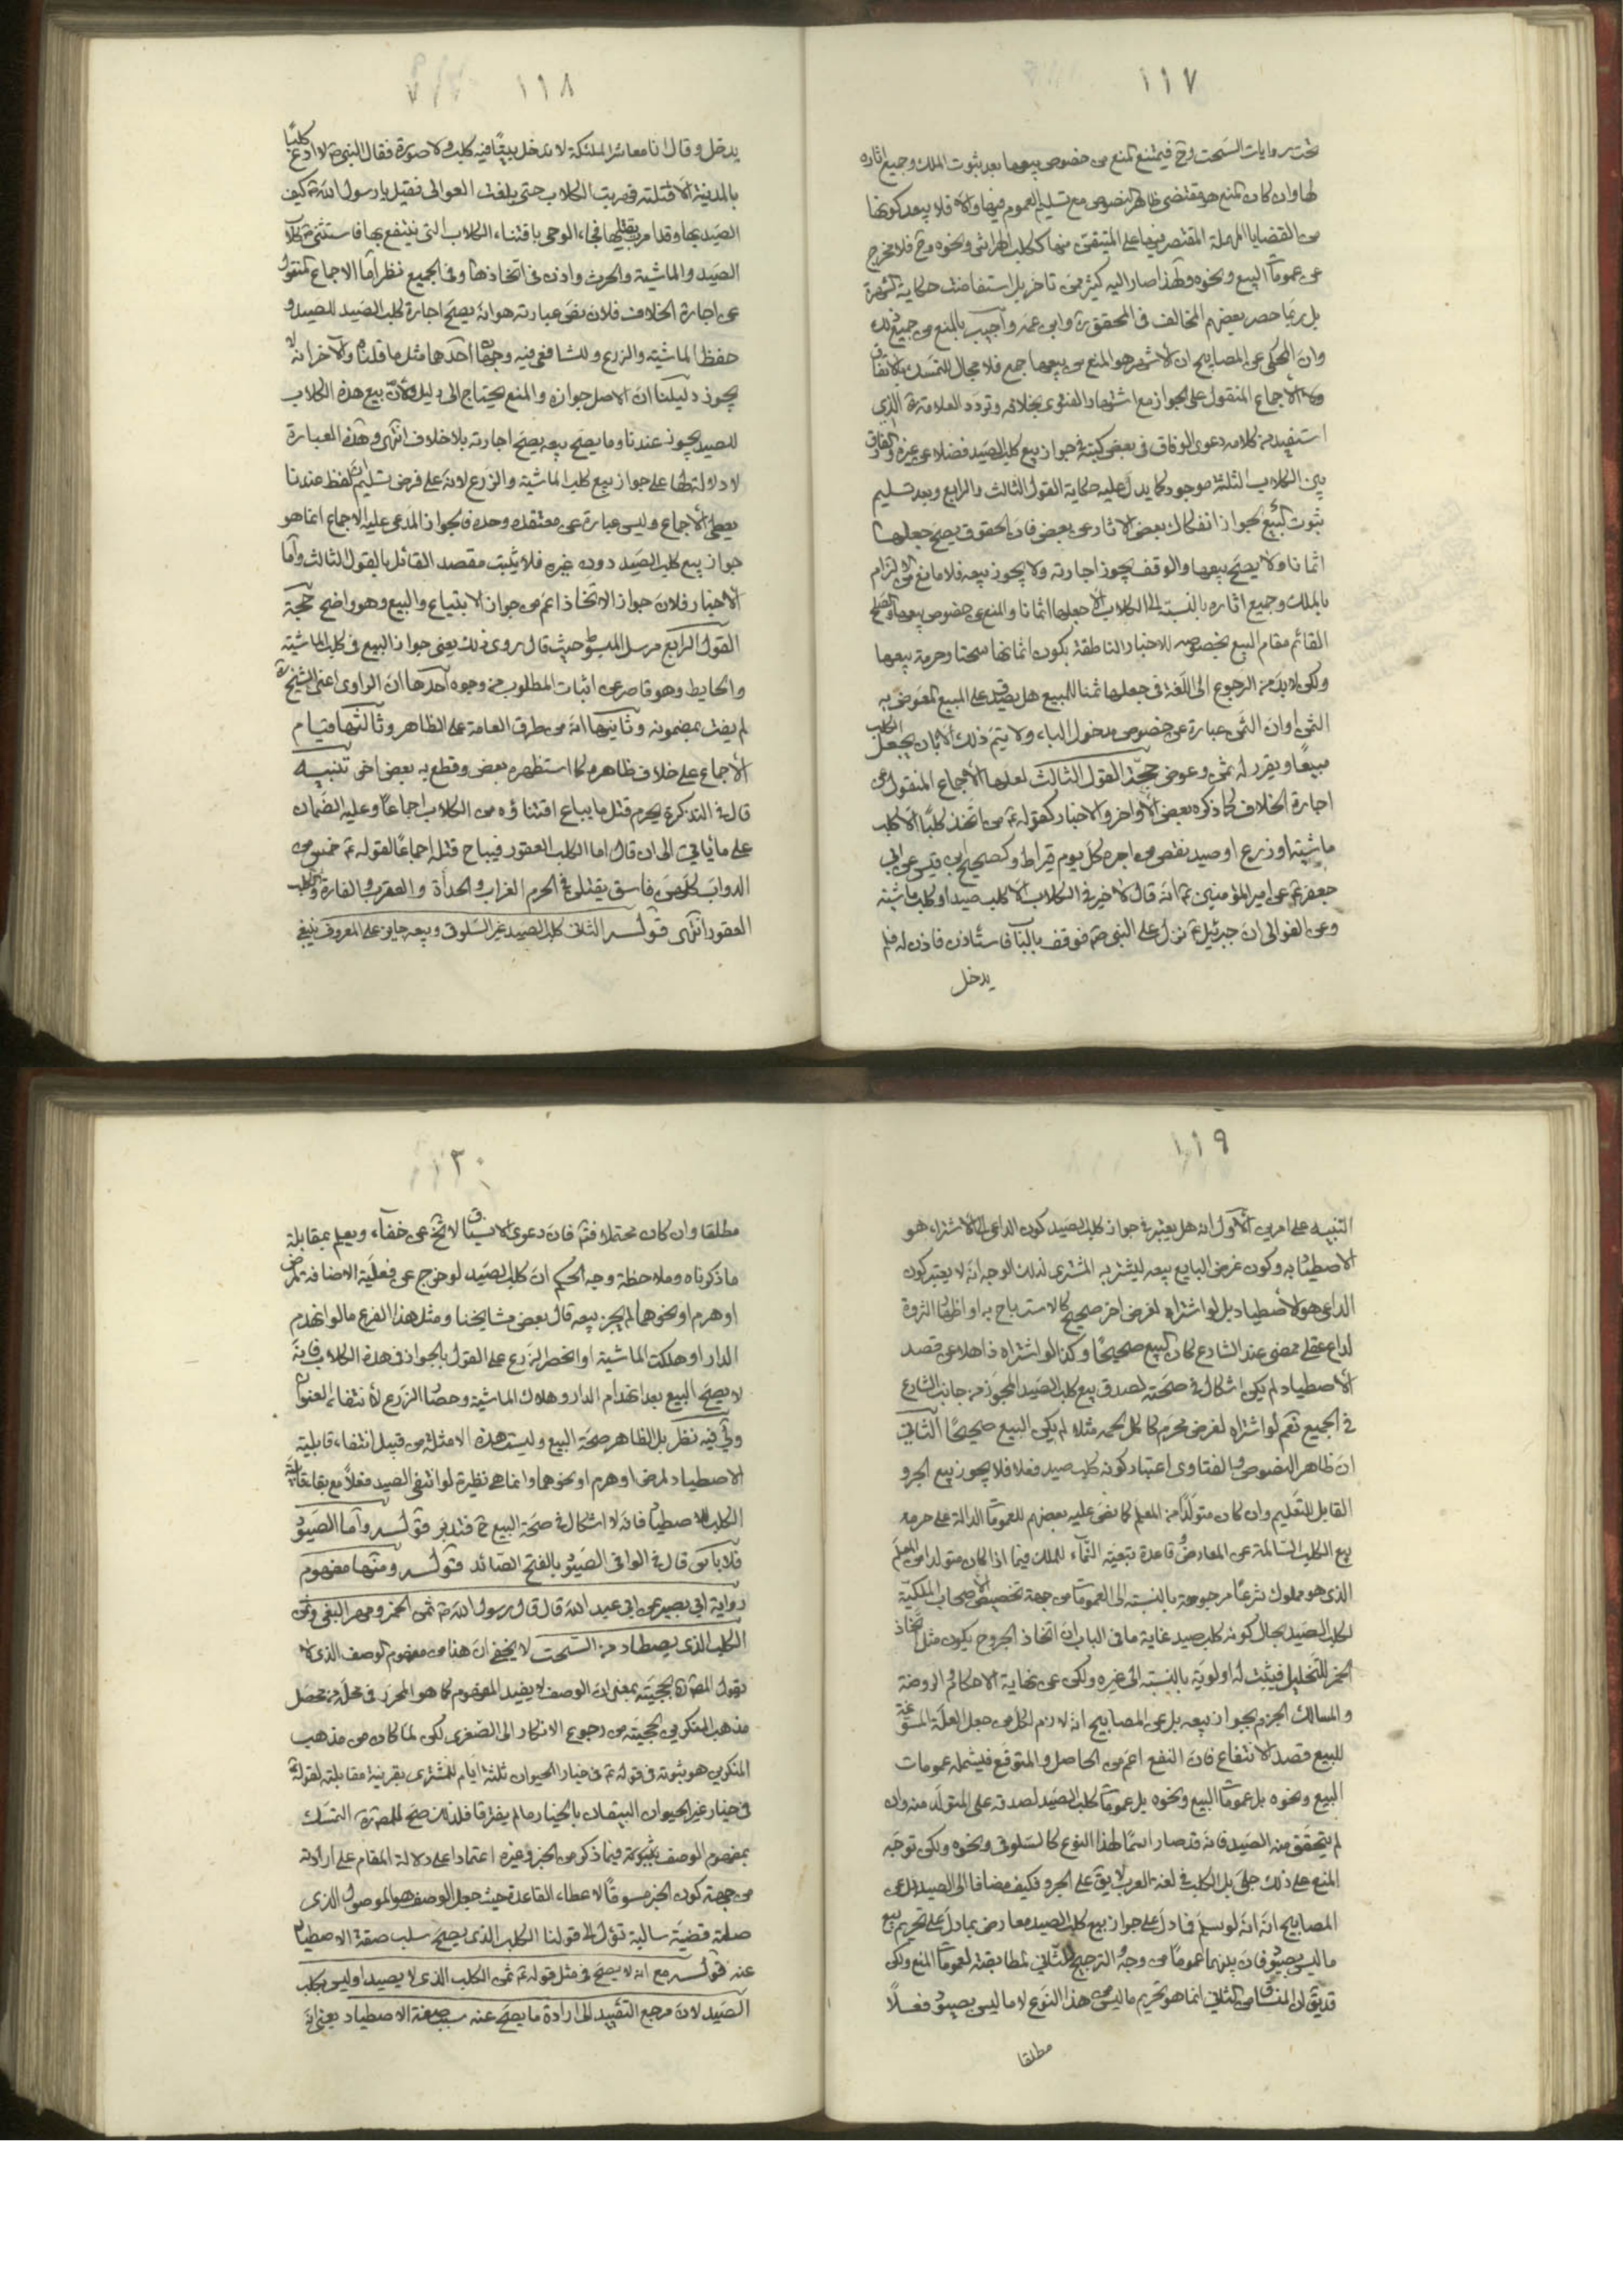 ١١٧
تحت روايات السحت وح فيمتنع المنع من خصوص بيعها بعد ثبوت الملك وجميع اثاره
لها وان كان المنع هو مقتضى ظاهر النصوص مع تسليم العموم فيها والا فلا يبعد كونها
من القضايا المهملة المقتصر فيها على المتيقن منها ككلب الهراش ونحوه وح فلا مخرج
عن عمومات البيع ونحوه ولهذا صار اليه كثير ممن تاخر بل استفاضت حكاية الشهرة
بل ربما حصر بعضهم المخالف في المحقق ره وابن عمه واجيب بالمنع من جميع ذلك
وان المحكي عن المصابيح ان الاشهر هو المنع من بيعها جمع فلا مجال للتمسك بالاتفاق
ولا الاجماع المنقول على الجواز مع اشتهار الفتوى بخلافه وتردد العلامة ره الذي
استفيد من كلامه دعوى الوفاق في بعض كتبه في جواز بيع كلب الصيد فضلا عن غيره والفارق
بين الكلاب الثلثة موجود كما يدل عليه حكاية القول الثالث والرابع وبعد تسليم
ثبوت البيع لجواز انفكاك بعض الاثار عن بعض فان الحقوق يصح جعلها
اثمانا ولا يصح بيعها والوقف يجوز اجارته ولا يجوز بيعه فلا مانع من الالتزام
بالملك وجميع اثاره بالنسبة الى الكلاب الا جعلها اثمانا والمنع عن خصوص بيعها والصلح
القائم مقام البيع بخصوصه للاخبار الناطقة بكون اثمانها سحتا وحرمة بيعها
ولكن لا بد من الرجوع الى اللغة في جعلها ثمنا للمبيع هل يصدق على المبيع المعوض به
الثمن او ان الثمن عبارة عن خصوص مدخول الباء ولا يتم ذلك الا بان يجعل الكلب
مبيعا ويقرر له ثمن وعوض حجة القول الثالث لعلها الاجماع المنقول عن
اجارة الخلاف كما ذكره بعض الاواخر والاخبار كقوله ع من اتخذ كلبا الا كلب
ماشية او زرع او صيد نقص من اجره كل يوم قيراط وكصحيح ابن قيس عن ابي
جعفر ع عن امير المؤمنين ع انه قال لا خير في الكلاب الا كلب صيد او كلب ماشية
وعن الغوالي ان جبرئيل ع نزل على النبي ص فوقف بالباب فاستأذن فاذن له فلم
يدخل
١١٨
يدخل وقال انا معاشر الملئكة لا ندخل بيتا فيه كلب ولا صورة فقال النبي ص لا ادع كلبا
بالمدينة الا قتلته فهربت الكلاب حتى بلغت العوالى فقيل يا رسول الله ص كيف
الصيد بها وقد امرت بقتلها فجاء الوحى باقتناء الكلاب التى ينتفع بها فاستثنى ص كلاب
الصيد والماشية والحرث واذن فى اتخاذها وفى الجميع نظر اما الاجماع المنقول
عن اجارة الخلاف فلان نص عبارته هو انه يصح اجارة كلب الصيد للصيد و
حفظ الماشية والزرع وللشافعي فيه وجهان احدهما مثل ما قلناه والاخر انه لا
يجوز دليلنا ان الاصل جوازه والمنع يحتاج الى دليل ولان بيع هذه الكلاب
للصيد يجوز عندنا وما يصح بيعه يصح اجارته بلا خلاف انتهى وهذه العبارة
لا دلالة لها على جواز بيع كلب الماشية والزرع لانه على فرض تسليم ان لفظ عندنا
يعطى الاجماع وليس عبارة عن معتقده وحده فالجواز المدعى عليه الاجماع انما هو
جواز بيع كلب الصيد دون غيره فلا يثبت مقصد القائل بالقول الثالث واما
الاخبار فلان جواز الاتخاذ اعم من جواز الابتياع والبيع وهو واضح حجة
القول الرابع مرسل المبسوط حيث قال روى ذلك يعنى جواز البيع فى كلب الماشية
والحايط وهو قاصر عن اثبات المطلوب من وجوه احدها ان الراوى اعنى الشيخ ره
لم يفت بمضمونه وثانيها انه من طرق العامة على الظاهر وثالثها قيام
الاجماع على خلاف ظاهره كما استظهره بعض وقطع به بعض اخر تنبيه
قال فى التذكرة يحرم قتل ما يباح اقتناؤه من الكلاب اجماعا وعليه الضمان
على ما يأتي الى ان قال اما الكلب العقور فيباح قتله اجماعا لقوله ع خمس من
الدواب كلهن فاسق يقتلن فى الحرم الغراب والحدأة والعقرب والفارة والكلب
العقور انتهى قوله الثانى كلب الصيد غير السلوقى وبيعه جايز على المعروف ينبغي
١١٩
التنبيه على امرين الاول انه هل يعتبر فى جواز كلب الصيد كون الداعى الى الاشتراء هو
الاصطياد به وكون غرض البايع بيعه ليشتر به المشترى لذلك الوجه انه لا يعتبر كون
الداعى هو الاصطياد بل لو اشتراه لغرض اخر صحيح كالاسترباح به او اظهار الثروة
لداع عقلي ممضى عند الشارع كان البيع صحيحا وكذا لو اشتراه ذاهلا عن قصد
الاصطياد لم يكن اشكال فى صحته لصدق بيع كلب الصيد المجوز من جانب الشارع
فى الجميع نعم لو اشتراه لغرض محرم كاكل لحمه مثلا لم يكن البيع صحيحا الثاني
ان ظاهر النصوص والفتاوى اعتبار كونه كلب صيد فعلا فلا يجوز بيع الجرو
القابل للتعليم وان كان متولدا من المعلم كما نص عليه بعضهم للعمومات الدالة على حرمة
بيع الكلب السالمة عن المعارض وقاعدة تبعية النماء للملك فيما اذا كان متولدا من المعلم
الذى هو مملوك شرعا مرجوحة بالنسبة الى العمومات من جهة تخصيص الاصحاب الملكية
لكلب الصيد بحال كونه كلب صيد غاية ما فى الباب ان اتخاذ الجروح يكون مثل اتخاذ
الخمر للتخليل فيثبت له اولوية بالنسبة الى غيره ولكن عن نهاية الاحكام والروضة
والمسالك الجزم بجواز بيعه بل عن المصابيح انه لازم لكل من جعل العلة المسوغة
للبيع قصد الانتفاع فان النفع اعم من الحاصل والمتوقع فيشمله عمومات
البيع ونحوه بل عمومات البيع ونحوه بل عمومات كلب الصيد لصدقه على المتولد منه وان
لم يتحقق منه الصيد فانه قد صار اسما لهذا النوع كالسلوقى ونحوه ولكن توجه
المنع على ذلك جلى بل الكلب فى لغة العرب لا يق على الجرو فكيف مضافا الى الصيد بل عن
المصابيح انه لو سلم فما دل على جواز بيع كلب الصيد معارض بما دل على تحريم بيع
ما ليس بصيود فان بينهما عموما من وجه والترجيح للثاني لمطابقته لعمومات المنع ولكن
قد يق ان المنساق من الثاني انما هو تحريم ما ليس من هذا النوع لا ما ليس بصيود فعلا
مطلقا
١٢٠
مطلقا وان كان محتملا فتم فان دعوى الانسياق لا تخ عن خفاء ويعلم بمقابلة
ما ذكرناه وملاحظة وجه الحكم ان كلب الصيد لو خرج عن فعلية الاضافة لمرض
او هرم او نحوهما لم يجز بيعه قال بعض مشايخنا ومثل هذا الفرع ما لو انهدم
الدار او هلكت الماشية او انحصر الزرع على القول بالجواز فى هذه الكلاب فانه
لا يصح البيع بعد انهدام الدار وهلاك الماشية وحصاد الزرع لانتفاء العنوان
ولي فيه نظر بل الظاهر صحة البيع وليست هذه الامثلة من قبيل انتفاء قابلية
الاصطياد لمرض او هرم او نحوهما وانما هى نظيرة لو انتفى الصيد فعلا مع بقاء قابلية
الكلب للاصطياد فانه لا اشكال فى صحة البيع ح فتدبر قوله واما الصيود
فلا بأس قال فى الوافى الصيود بالفتح الصائد قوله ومنها مفهوم
رواية ابى بصير عن ابى عبد الله قال قال رسول الله ص ثمن الخمر ومهر البغى وثمن
الكلب الذى لا يصطاد من السحت لا يخفى ان هذا من مفهوم الوصف الذى لا
نقول المص ره بحجيته بمعنى ان الوصف لا يفيد المفهوم كما هو المحرر فى محله من محصل
مذهب المنكرين لحجيته من رجوع الانكار الى الصغرى لكن لما كان من مذهب
المنكرين هو ثبوته فى قوله ع فى خيار الحيوان ثلثة ايام للمشترى بقرينة مقابلته لقوله
فى خيار غير الحيوان البيعان بالخيار ما لم يفترقا فلذلك صح للمص ره التمسك
بمفهوم الوصف بثبوته فيما ذكر من الخبر وغيره اعتمادا على دلالة المقام على ارادته
من جهة كون الخبر مسوقا لاعطاء القاعدة حيث جعل الوصف هو الموصول الذى
صلته قضية سالبة تؤل الى قولنا الكلب الذى يصح سلب صفة الاصطياد
عنه قوله مع انه لا يصح فى مثل قوله ع ثمن الكلب الذى لا يصيد او ليس بكلب
الصيد لان مرجع التقييد الى ارادة ما يصح عنه سلب صفة الاصطياد يعنى انه